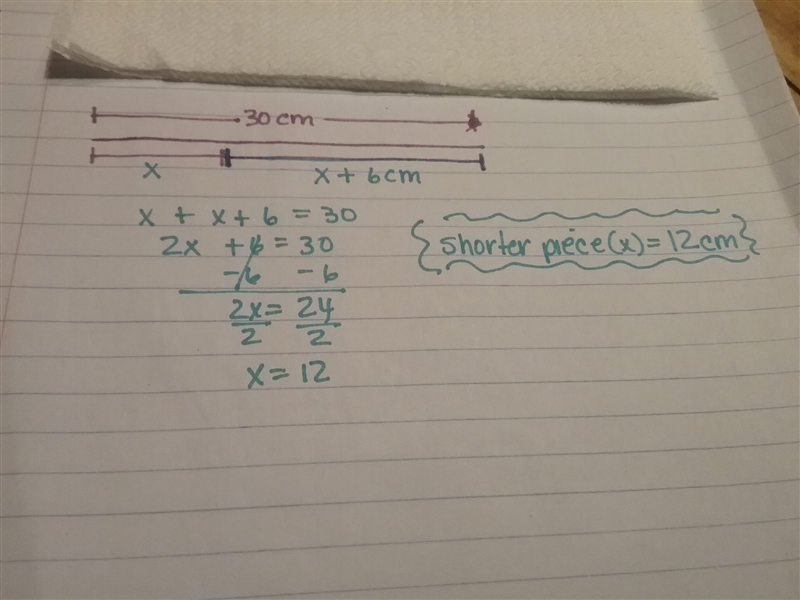 30 cm
x x + 6 cm
x + x + 6 = 30
2x + 6 = 30
-6 -6
2x = 24
2 2
x = 12
{shorter piece (x) = 12 cm}